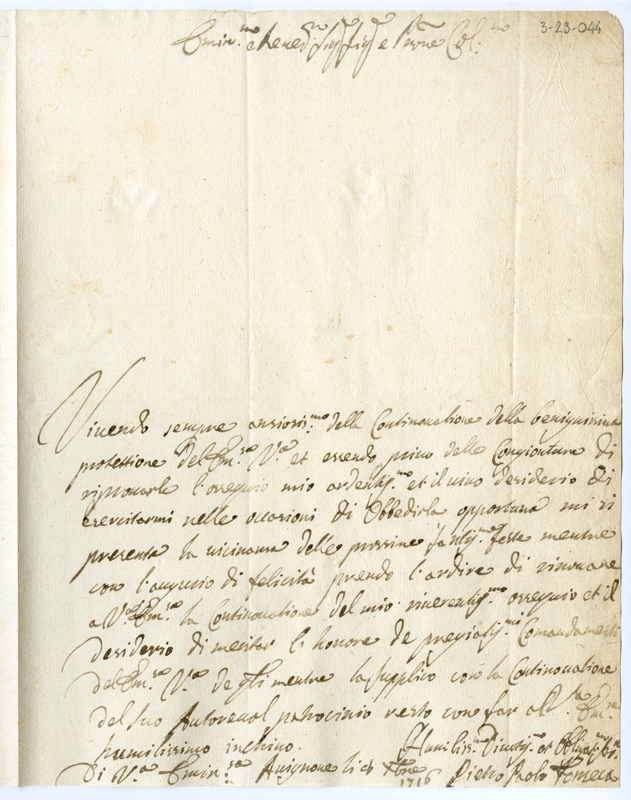 3-23-044
Emin.mo e Reued.mo Sig.r Sig.r e Prone Col.mo
Viuendo sempre ansiosis.mo della Continouatione della benignissima
protettione dell Em.za V.a et essendo priuo delle Congionture di
rinouarle l'ossequio mio ardentis.mo et il uiuo desiderio di
esercitarmi nelle occasioni di Obbedirla opportuna mi si
presenta la uicinanza delle prossime santis.me feste mentre
con l'augurio di felicità prendo l'ardire di rinouare
a V.a Em.za la Continouatione del mio riuerentis.mo ossequio et il
desiderio di meritar l'honore de pregiatis.mi Comandamenti
dell Em.za V.a de q.li mentre la supplico con la Continouatione
del suo Autoreuol patrocinio resto con far all Em.za
humilissimo inchino.
Di V.a Emin.za Auignone li Xbre 1716
Humiliss.mo Diuotis.mo et Obligatis.mo
Pietro Paolo Fonseca